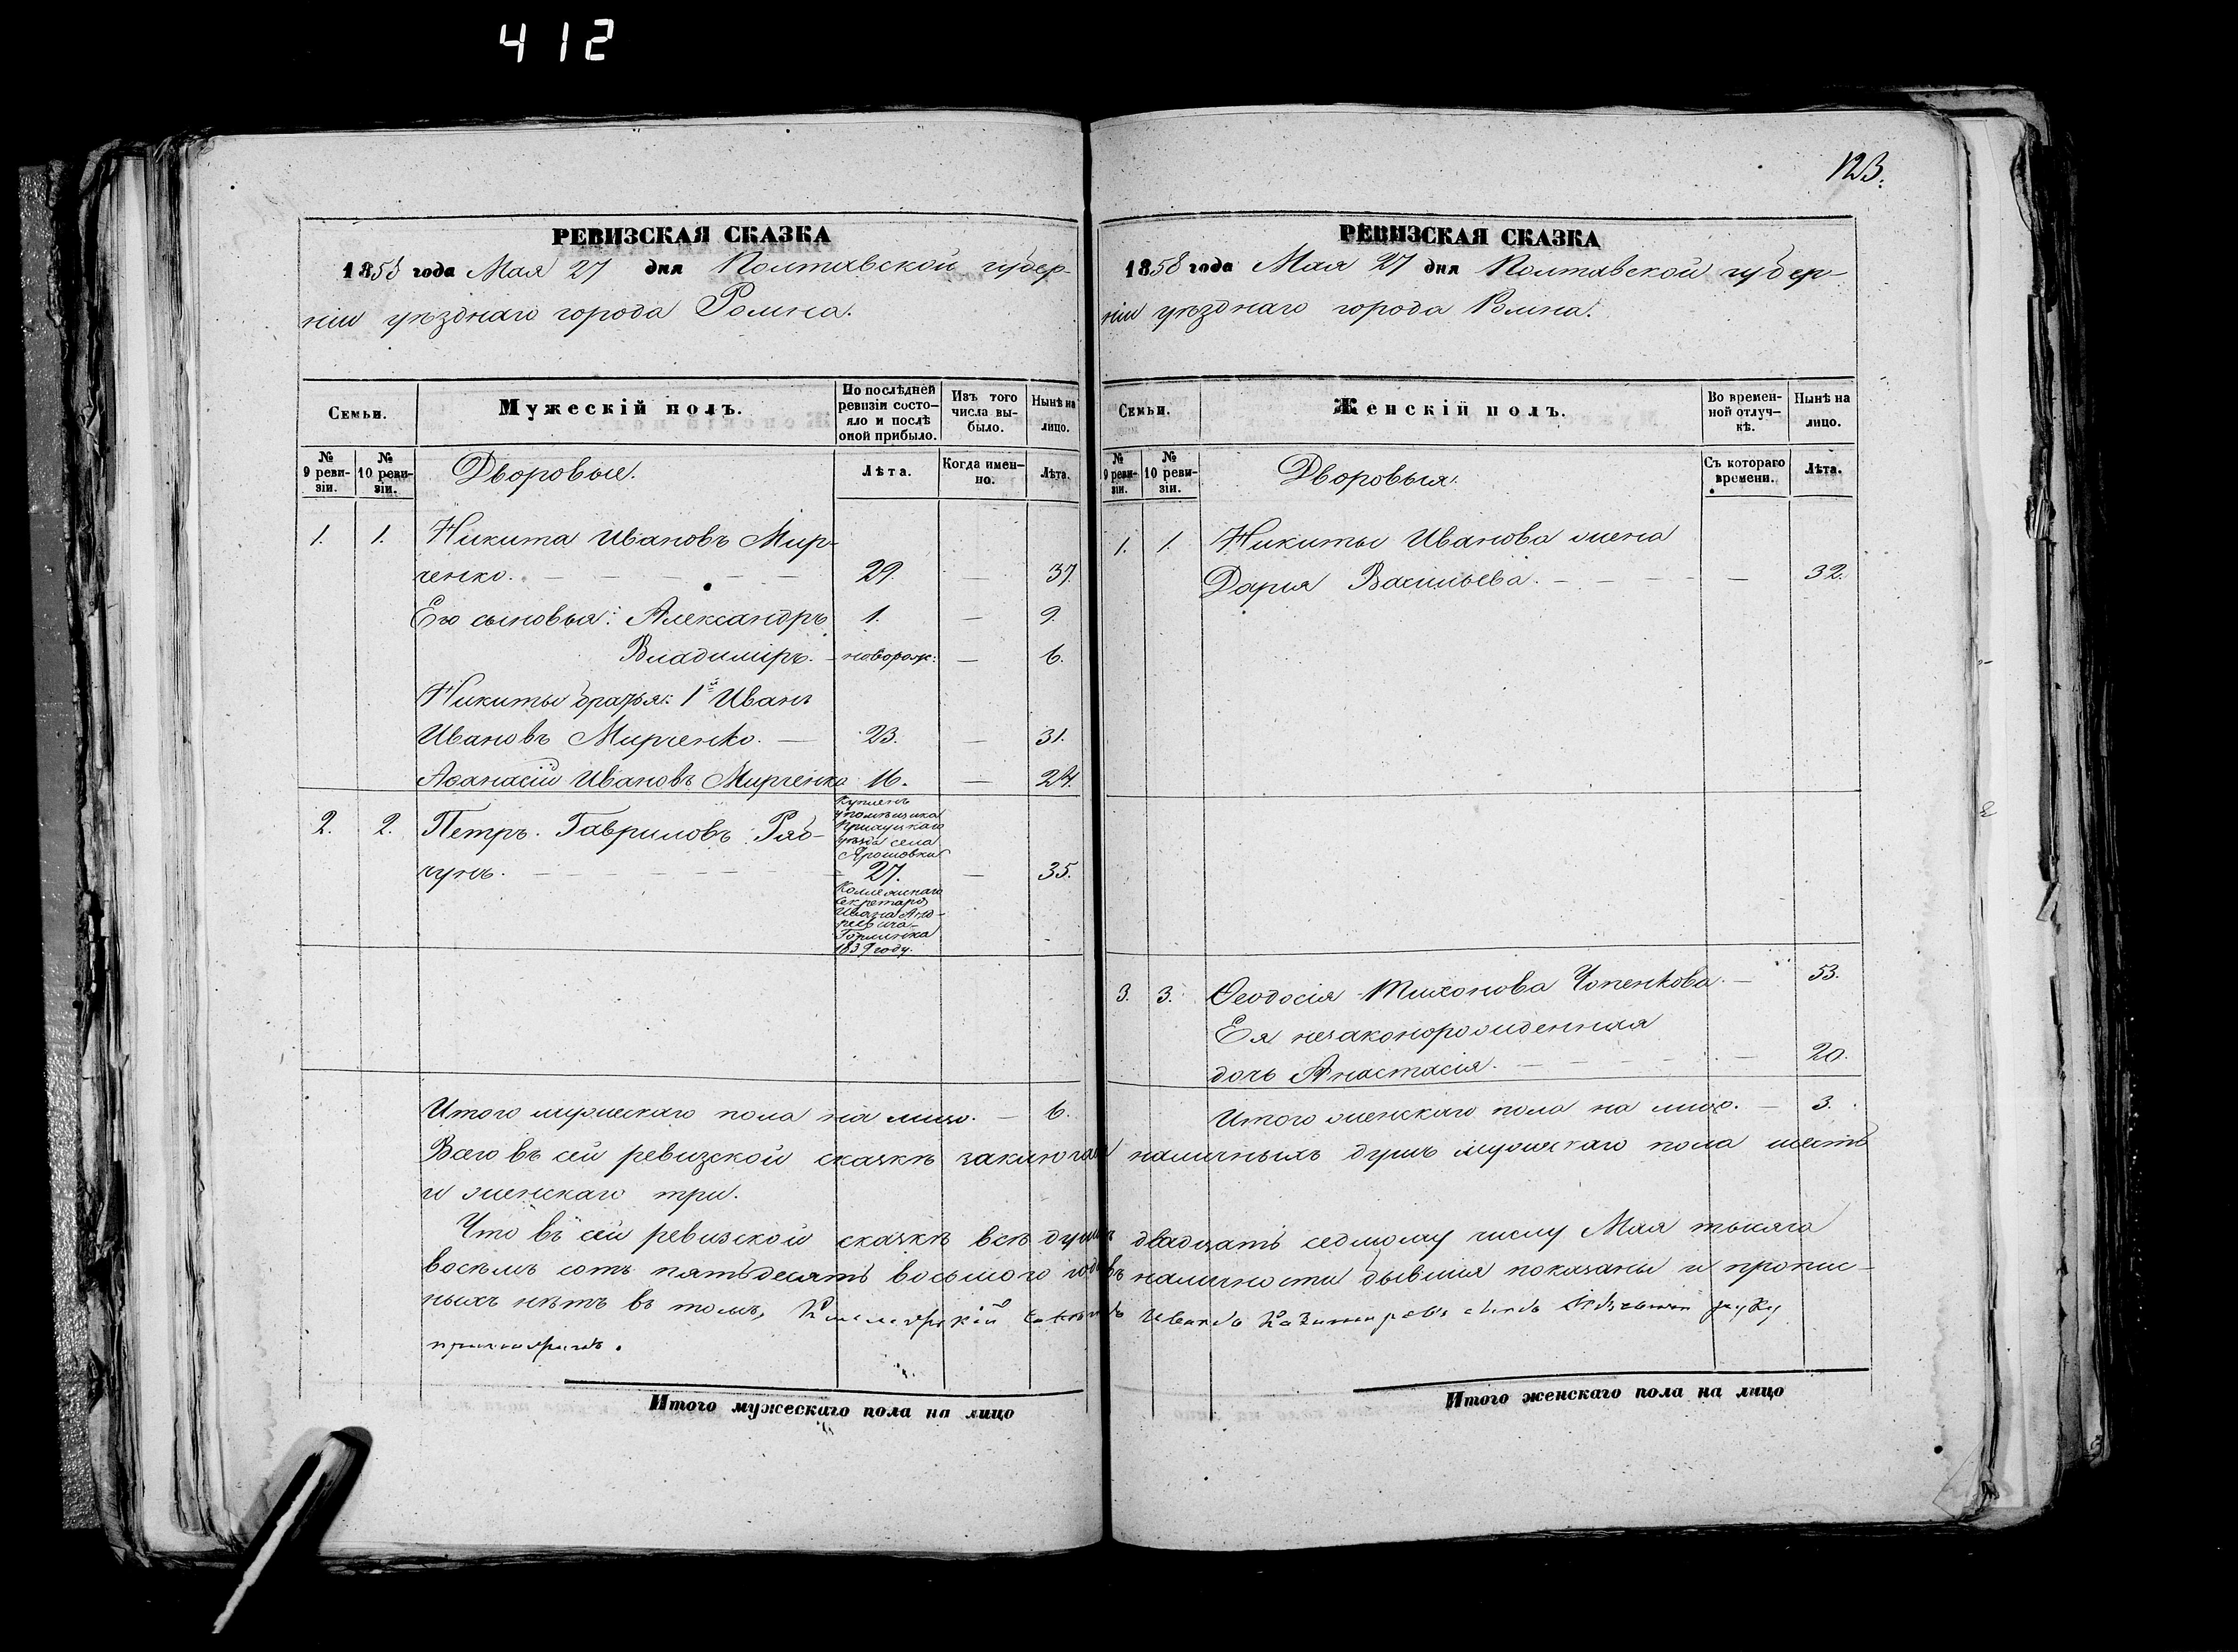 412
123.
РЕВИЗСКАЯ СКАЗКА
1858 года Мая 27 дня Полтавской губер-
ніи уѣзднаго города Ромна.
Семьи.
Мужескій полъ.
По послѣдней ревизіи состо-яло и послѣ оной прибыло.
Изъ того числа вы-было.
Нынѣ на лицо.
№ 9 реви-зіи.
№ 10 реви-зіи.
Дворовые.
Лѣта.
Когда имен-но.
Лѣта.
1. 1. Никита Ивановъ Мир-
ченко. 29. — 37.
Его сыновья: Александръ 1. — 9.
Владиміръ. — новорож: — 6.
Никиты братья: 1й Иванъ
Ивановъ Мирченко. — 23. — 31.
Аѳанасій Ивановъ Мирченко 16. — 24.
Купленъ
у помѣщика
Прилуцкаго
уѣзда села
Ярошовки
2. 2. Петръ Гавриловъ Ряб-
чунъ. 27. — 35.
Коллежскаго
Секретаря
Ивана Анд-
реевича
1839 году.
Итого мужескаго пола на лицо. — 6.
РЕВИЗСКАЯ СКАЗКА
1858 года Мая 27 дня Полтавской губер-
ніи уѣзднаго города Ромна.
Семьи.
Женскій полъ.
Во времен-ной отлуч-кѣ.
Нынѣ на лицо.
№ 9 реви-зіи.
№ 10 реви-зіи.
Дворовыя.
Съ котораго времени.
Лѣта.
1. 1. Никиты Иванова жена
Дарья Васильева. — 32.
3. 3. Ѳеодосія Тихонова Чопенкова. — 53.
Ея незаконорожденная
дочь Анастасія. — 20.
Итого женскаго пола на лицо. — 3.
Всего въ сей ревизской сказкѣ заключая наличныхъ душъ мужескаго пола шесть
и женскаго три.
Что въ сей ревизской сказкѣ всѣ души двадцать седмому числу Мая тысяча
восемь сотъ пятьдесятъ восьмого года въ наличности бывшія показаны и пропис-
ныхъ нѣтъ въ томъ,
Итого мужескаго пола на лицо
Итого женскаго пола на лицо